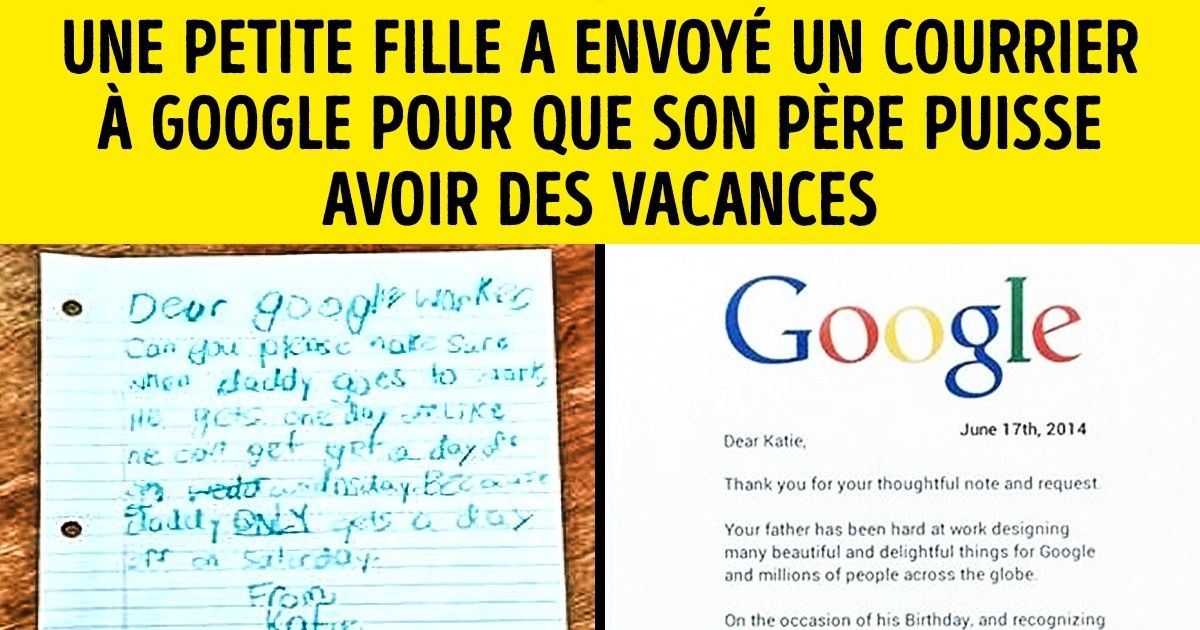 UNE PETITE FILLE A ENVOYÉ UN COURRIER
À GOOGLE POUR QUE SON PÈRE PUISSE
AVOIR DES VACANCES
Dear google worker
Can you please make sure
when daddy goes to work
He gets one day off. Like
he can get get a day off
on wednsday. Because
daddy ONLY gets a day
off on Saturday.
From
Katie
Google
June 17th, 2014
Dear Katie,
Thank you for your thoughtful note and request.
Your father has been hard at work designing
many beautiful and delightful things for Google
and millions of people across the globe.
On the occasion of his Birthday, and recognizing